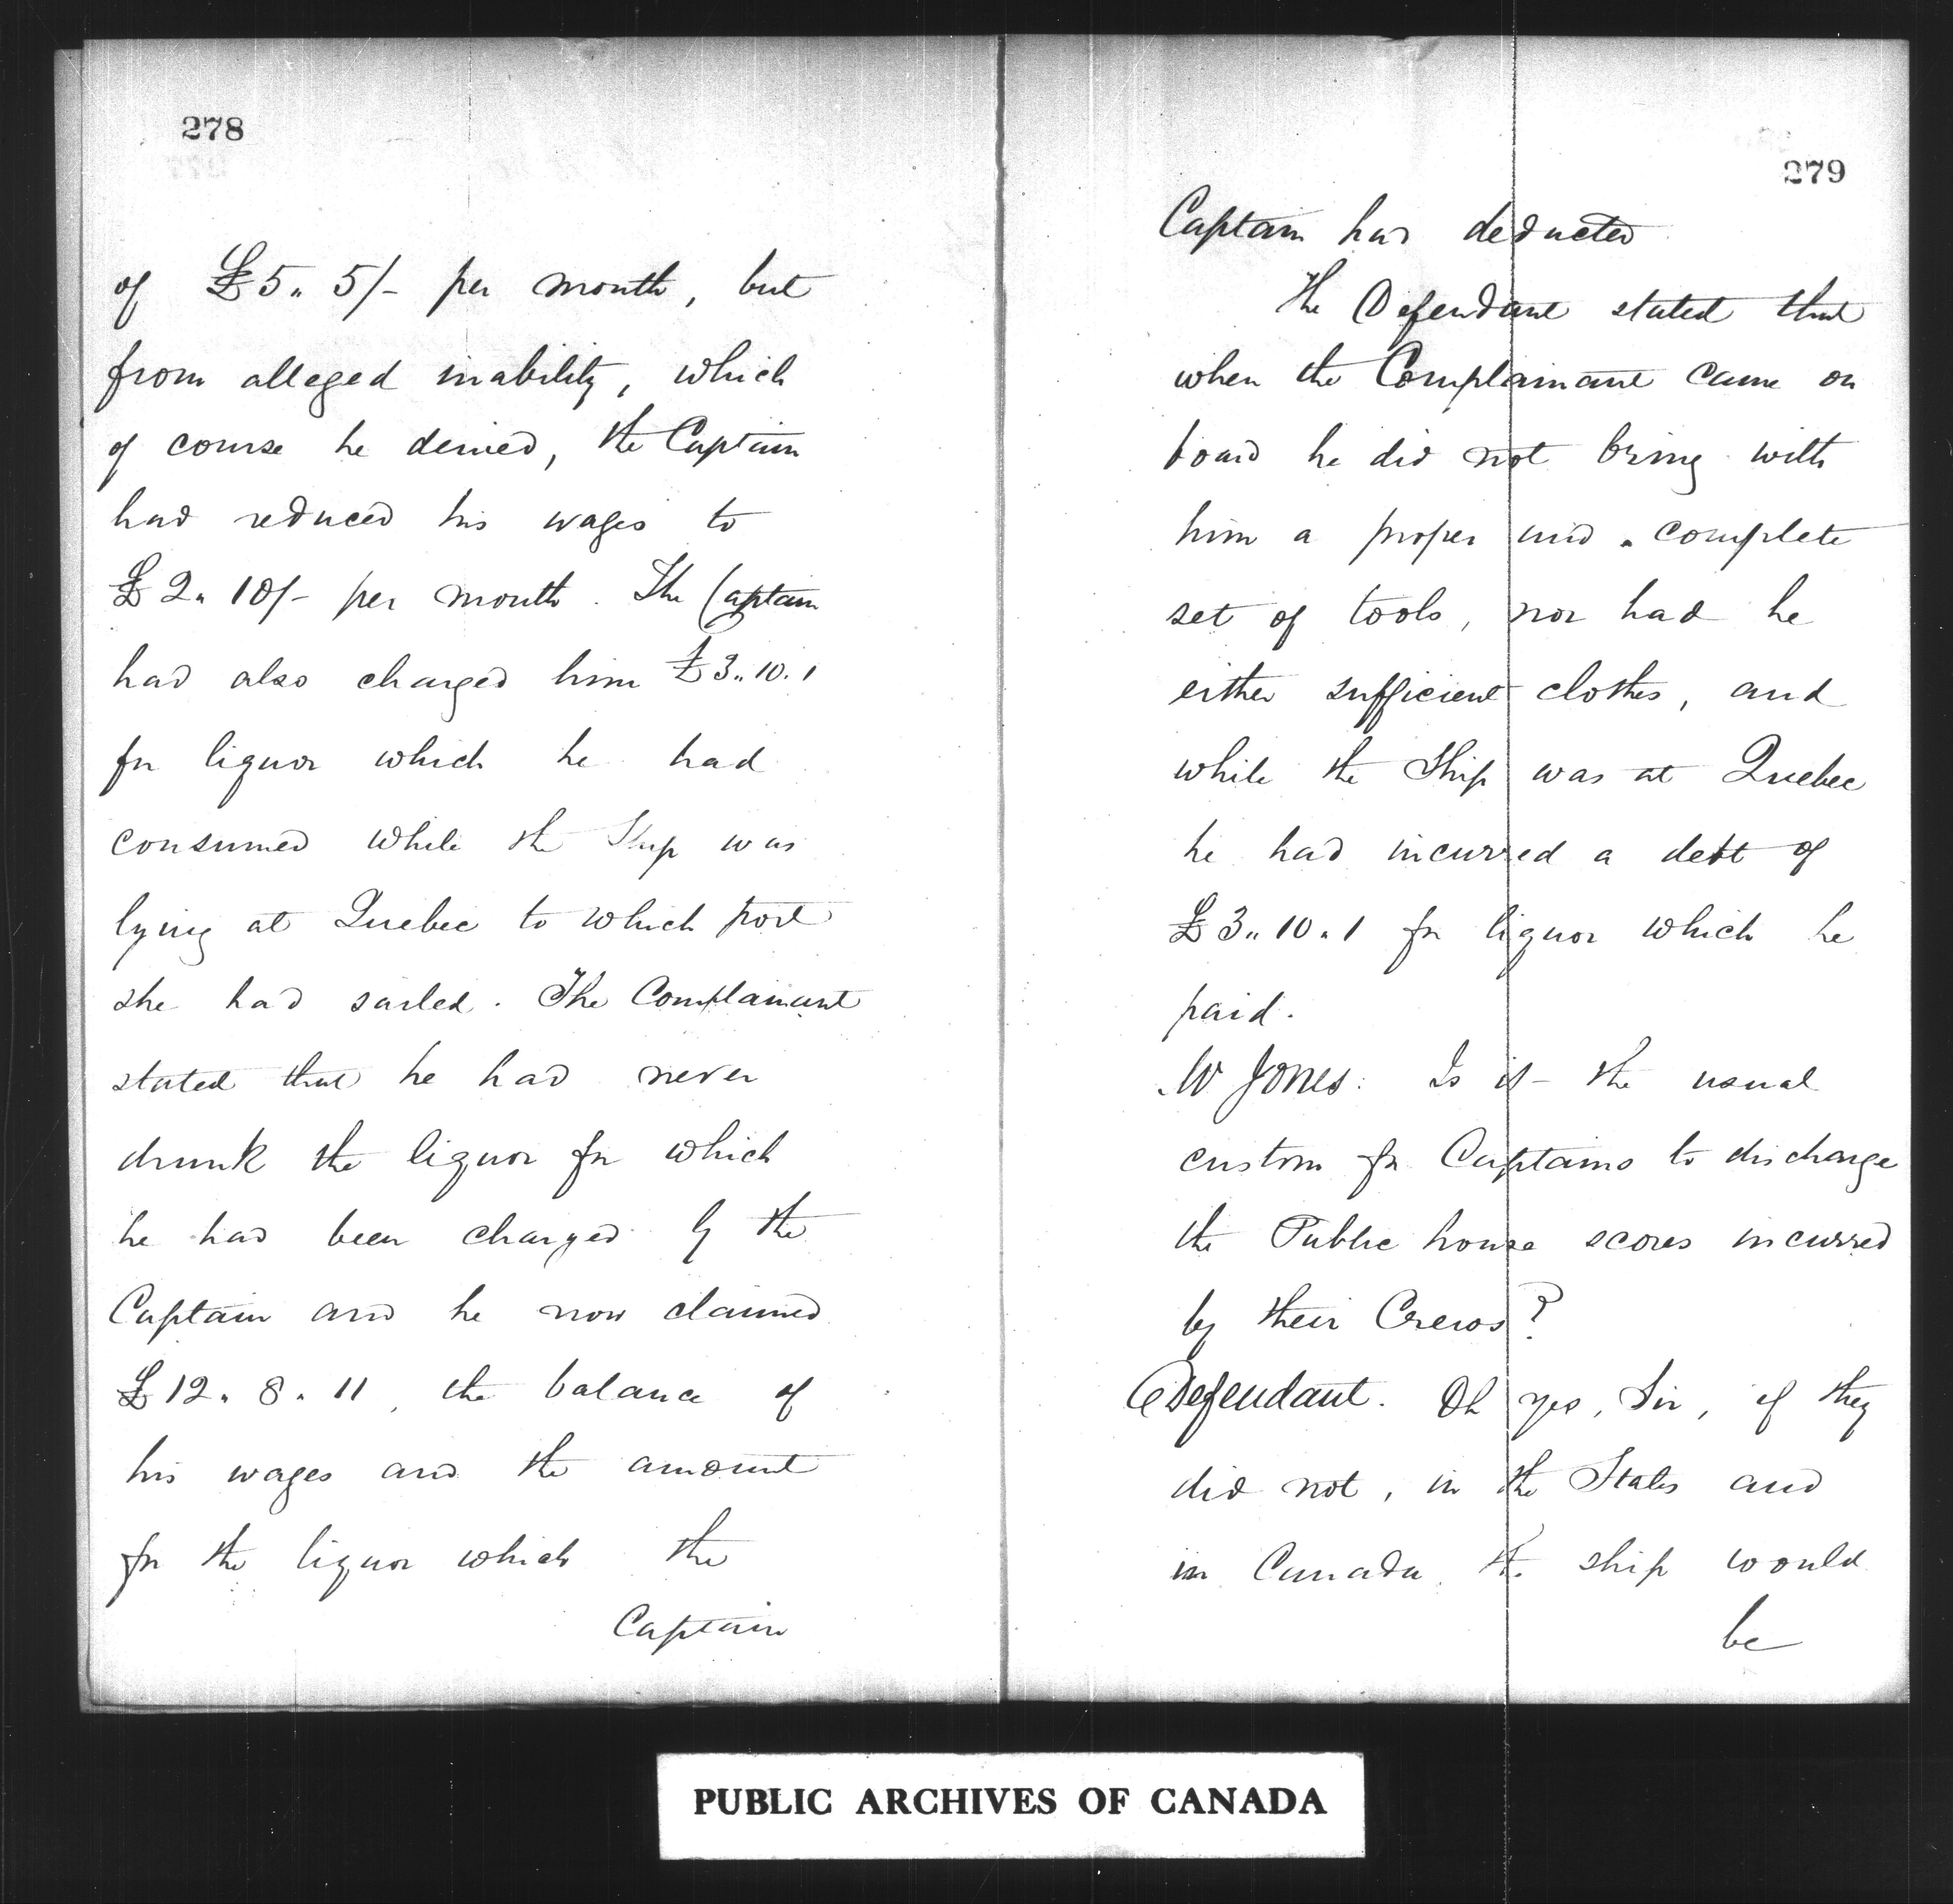 278
of £5„ 5/- per month, but
from alleged inability, which
of course he denied, the Captain
had reduced his wages to
£2„ 10/- per month. The Captain
had also charged him £3„10.1
for liquor which he had
consumed while the Ship was
lying at Quebec to which port
she had sailed. The Complainant
stated that he had never
drunk the liquor for which
he had been charged by the
Captain and he now claimed
£12„ 8„ 11, the balance of
his wages and the amount
for the liquor which the
Captain
279
Captain had deducted
The Defendant stated that
when the Complainant came on
board he did not bring with
him a proper and complete
set of tools, nor had he
either sufficient clothes, and
while the Ship was at Quebec
he had incurred a debt of
£3„ 10„1 for liquor which he
paid.
W Jones: Is it - the usual
custom for Captains to discharge
the Public house scores incurred
by their Crews?
Defendant. Oh yes, Sir, if they
did not, in the States and
in Canada, the ship would
be
PUBLIC ARCHIVES OF CANADA